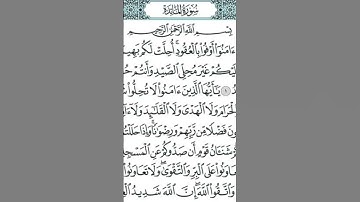 سُورَةُ المَائِدَةِ
بِسْمِ ٱللَّهِ ٱلرَّحْمَٰنِ ٱلرَّحِيمِ
ءَامَنُوٓا۟ أَوْفُوا۟ بِٱلْعُقُودِ أُحِلَّتْ لَكُم بَهِي
لَيْكُمْ غَيْرَ مُحِلِّى ٱلصَّيْدِ وَأَنتُمْ حُ
يَٰٓأَيُّهَا ٱلَّذِينَ ءَامَنُوا۟ لَا تُحِلُّوا۟
ٱلْحَرَامَ وَلَا ٱلْهَدْىَ وَلَا ٱلْقَلَٰٓئِدَ وَلَآ ءَا
ونَ فَضْلًا مِّن رَّبِّهِمْ وَرِضْوَٰنًا وَإِذَا حَلَلْتُ
شَنَـَٔانُ قَوْمٍ أَن صَدُّوكُمْ عَنِ ٱلْمَسْجِ
اوَنُوا۟ عَلَى ٱلْبِرِّ وَٱلتَّقْوَىٰ وَلَا تَعَاوَنُو
وَٱتَّقُوا۟ ٱللَّهَ إِنَّ ٱللَّهَ شَدِيدُ ٱلْعِ